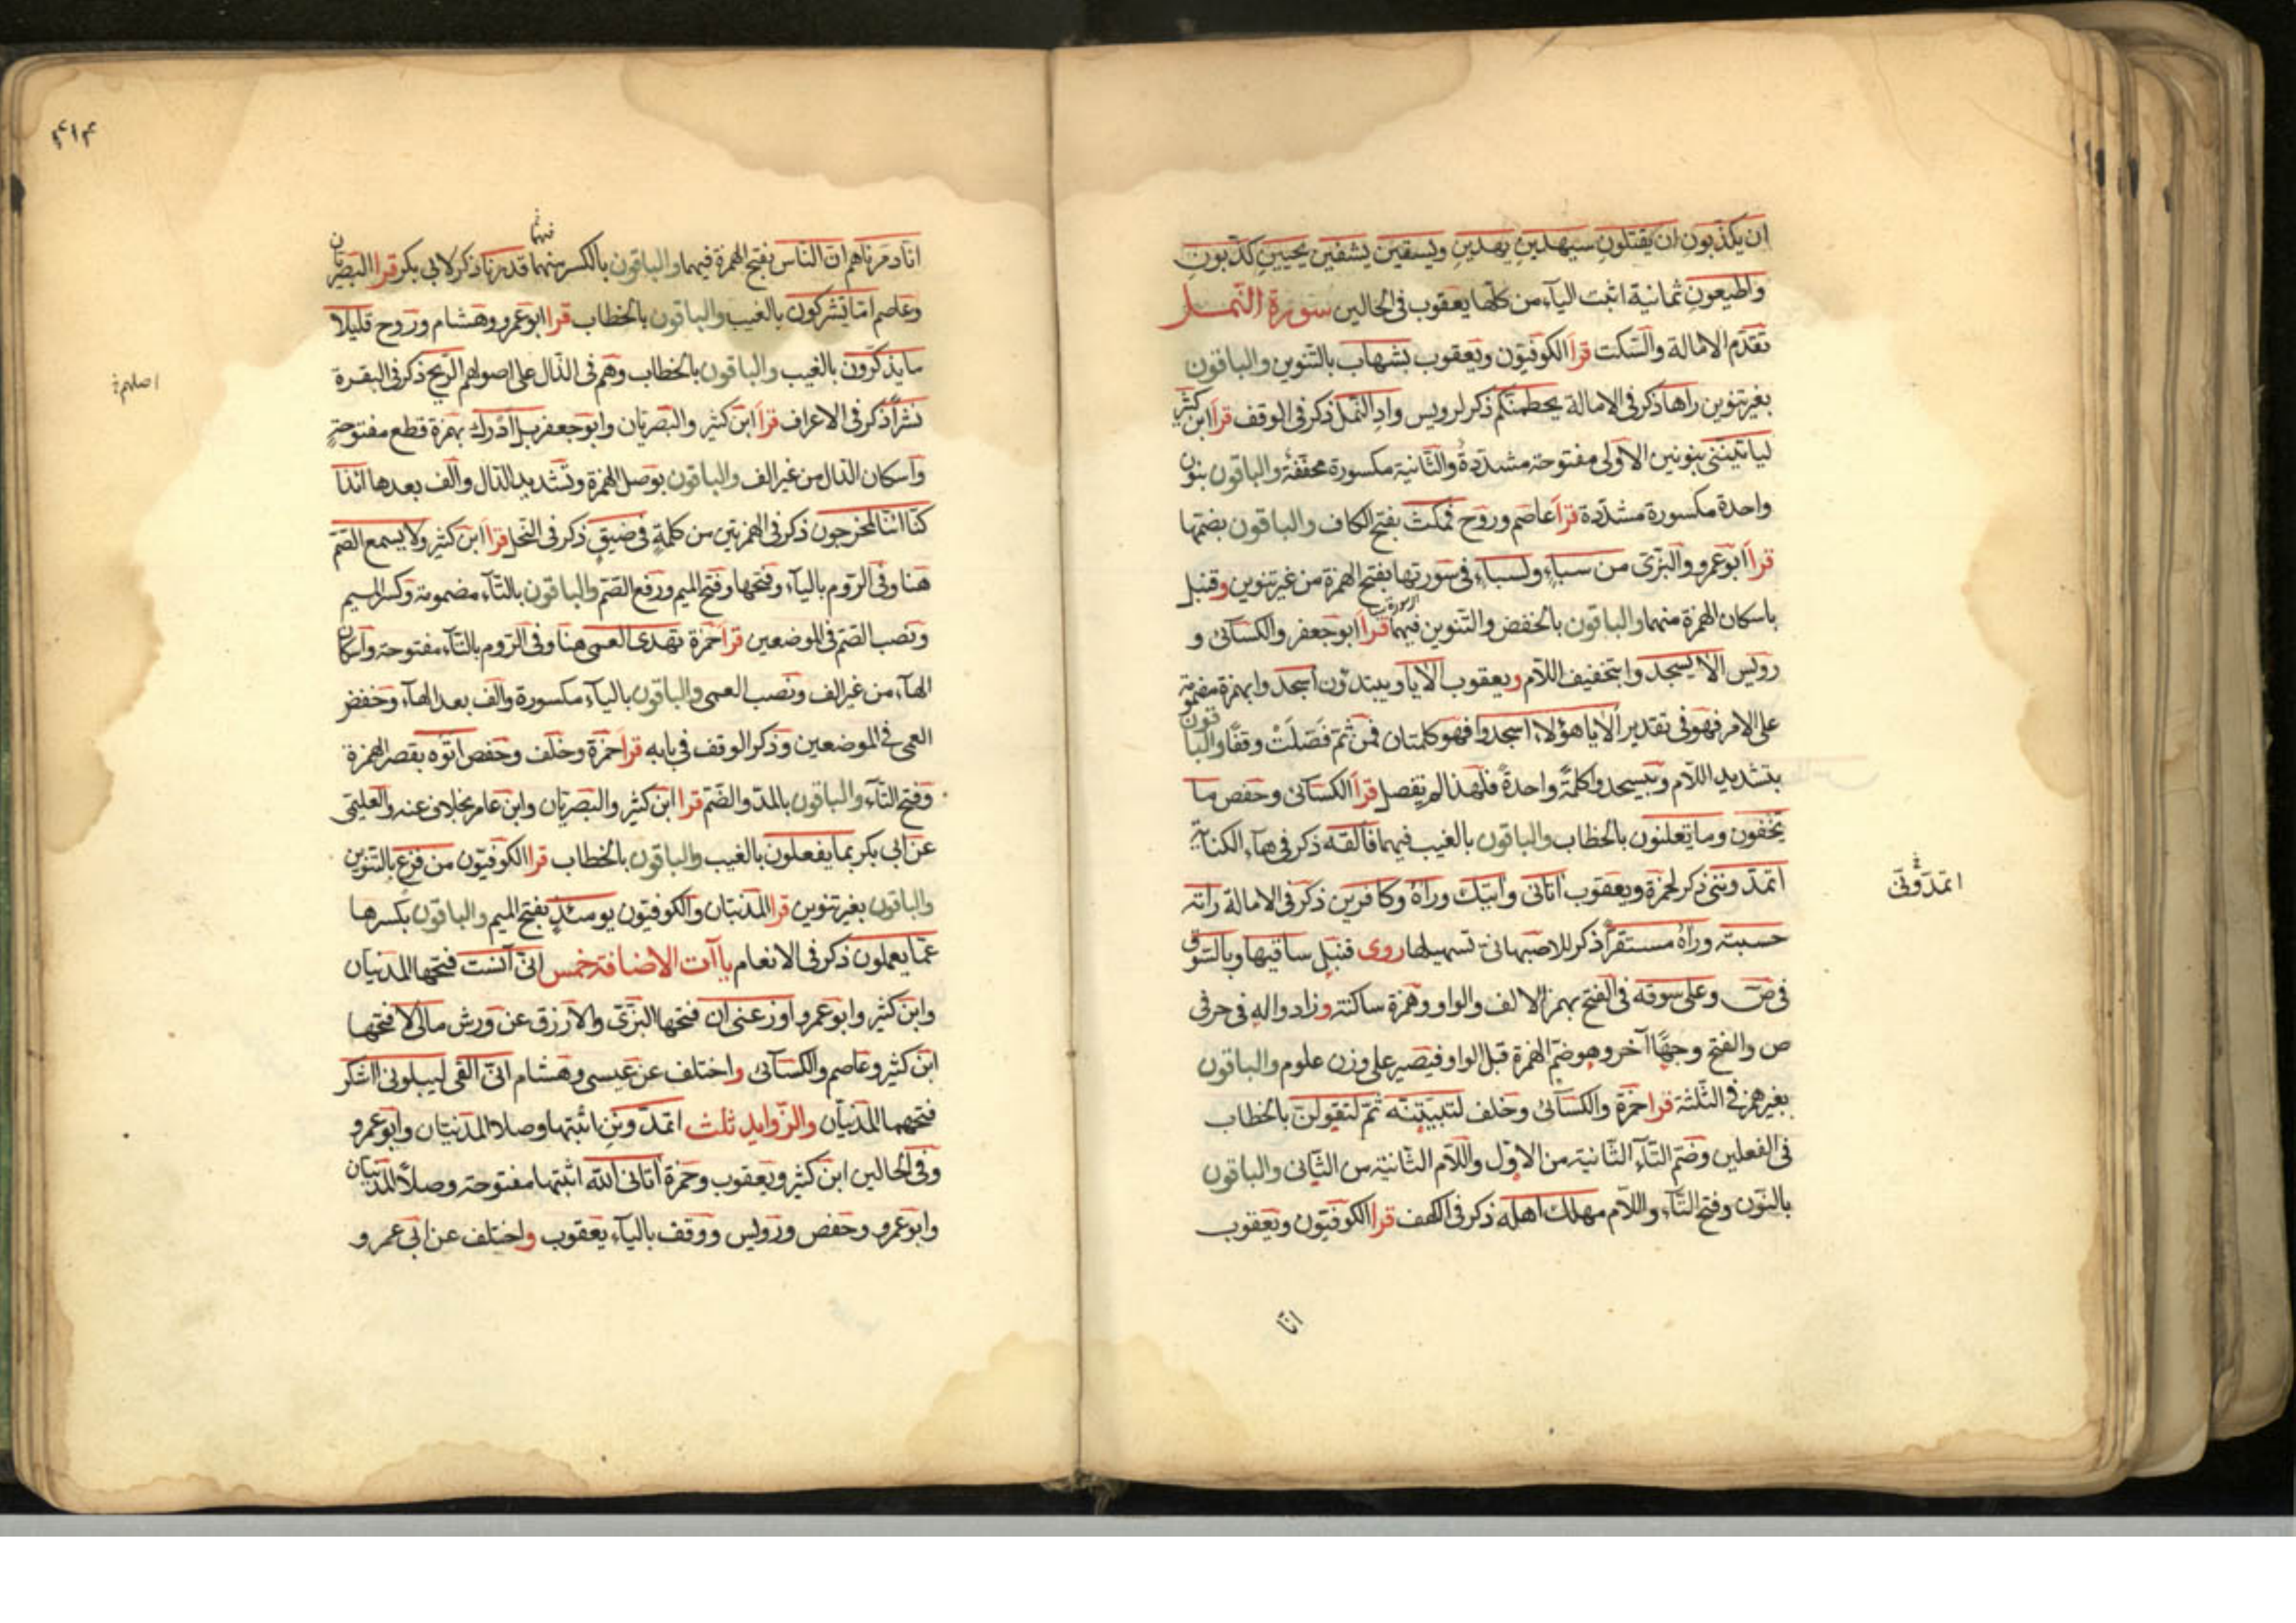 ان يكذبون ان يقتلون سيهدين يهدين ويسقين يشفين يحيين كذبون
واطيعون ثمانية اثبت اليآء من كلها يعقوب فى الحالين سورة النمل
تقدم الامالة والسكت قرأ الكوفيون ويعقوب بشهاب بالتنوين والباقون
بغير تنوين راها ذكر فى الامالة يحطمنكم ذكر لرويس واد النمل ذكر فى الوقف قرأ ابن كثير
لياتيننى بنونين الاولى مفتوحة مشددة والثانية مكسورة مخففة والباقون بنون
واحدة مكسورة مشددة قرأ عاصم وروح فمكث بفتح الكاف والباقون بضمها
قرأ ابو عمرو والبزى من سباء ولسباء فى سورتها بفتح الهمزة من غير تنوين وقنبل
باسكان الهمزة منهما والباقون بالخفض والتنوين فيهما قرأ ابو جعفر والكسائى و
رويس الا يسجدوا بتخفيف اللام ويعقوب الا يا ويبتدؤن اسجدوا بهمزة مضمومة
على الامر فهو فى تقدير الا يا هؤلاء اسجدوا فهو كلمتان فمن ثم فصلت وقفا والباقون
بتشديد اللام ويسجدوا كلمة واحدة فلهذا لم يفصل قرأ الكسائى وحفص ما
يخفون وما تعلنون بالخطاب والباقون بالغيب فيهما فالقه ذكر فى هآء الكناية
اتمدوننى ذكر لحمزة ويعقوب اتانى وآتيك ورآه وكافرين ذكر فى الامالة راته
حسبته ورآه مستقرا ذكر للاصبهانى تسهيلها روى قنبل ساقيها وبالسوق
فى ص وعلى سوقه فى الفتح بهمز الالف والواو وهمزة ساكنة وزادوا له فى حرفى
ص والفتح وجها آخر وهو ضم الهمزة قبل الواو فيصير على وزن علوم والباقون
بغير همز فى الثلثة قرأ حمزة والكسائى وخلف لتبيتنه ثم لتقولن بالخطاب
فى الفعلين وضم التاء الثانية من الاول واللام الثانية من الثانى والباقون
بالنون وفتح التاء واللام مهلك اهله ذكر فى الكهف قرأ الكوفيون ويعقوب
انا
۴۱۴
انا دمرناهم ان الناس بفتح الهمزة فيهما والباقون بالكسر منهما قدرناها ذكر لابى بكر قرأ البصريان
وعاصم اما يشركون بالغيب والباقون بالخطاب قرأ ابو عمرو وهشام وروح قليلا
ما يذكرون بالغيب والباقون بالخطاب وهم فى الذال على اصولهم الريح ذكر فى البقرة
نشرا ذكر فى الاعراف قرأ ابن كثير والبصريان وابو جعفر بل ادرك بهمزة قطع مفتوحة
واسكان الدال من غير الف والباقون بوصل الهمزة وتشديد الدال والف بعدها ائذا
كنا ائنا لمخرجون ذكر فى الهمزتين من كلمة فى ضيق ذكر فى النحل قرأ ابن كثير ولا يسمع الصم
هنا وفى الروم باليآء وفتحها وفتح الميم ورفع الصم والباقون بالتآء مضمومة وكسر الميم
ونصب الصم فى الموضعين قرأ حمزة تهدى العمى هنا وفى الروم بالتآء مفتوحة واسكان
الهآء من غير الف ونصب العمى والباقون باليآء مكسورة والف بعد الهآء وخفض
العمى فى الموضعين وذكر الوقف فى بابه قرأ حمزة وخلف وحفص اتوه بقصر الهمزة
وفتح التآء والباقون بالمد والضم قرأ ابن كثير والبصريان وابن عامر بخلاف عنه والعليمى
عن ابى بكر بما يفعلون بالغيب والباقون بالخطاب قرأ الكوفيون من فزع بالتنوين
والباقون بغير تنوين قرأ المدنيان والكوفيون يومئذ بفتح الميم والباقون بكسرها
عما يعملون ذكر فى الانعام ياآت الاضافة خمس انى آنست فتحها المدنيان
وابن كثير وابو عمرو اوزعنى ان فتحها البزى والازرق عن ورش مالى لا فتحها
ابن كثير وعاصم والكسائى واختلف عن عيسى وهشام انى القى ليبلونى ااشكر
فتحهما المدنيان والزوايد ثلث اتمدونن اثبتها وصلا المدنيان وابو عمرو
وفى الحالين ابن كثير ويعقوب وحمزة آتانى الله اثبتها مفتوحة وصلا المدنيان
وابو عمرو وحفص ورويس ووقف باليآء يعقوب واختلف عن ابى عمرو